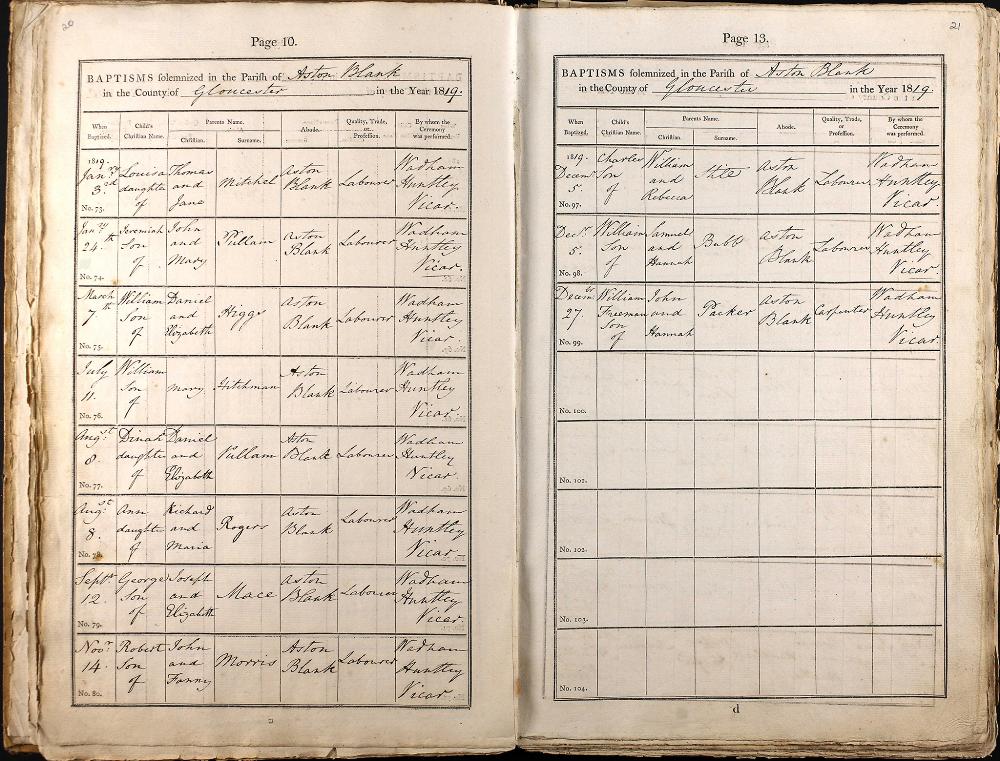 20
Page 10.
BAPTISMS solemnized in the Parish of Aston Blank
in the County of Gloucester in the Year 1819.
When Baptized. Child's Christian Name. Parents Name. Christian. Surname. Abode. Quality, Trade, or Profession. By whom the Ceremony was performed.
1819. Jany. 3rd No. 73. Louisa daughter of Thomas and Jane Mitchel Aston Blank Labourer Wadham Huntley Vicar.
Jany. 24th No. 74. Jeremiah Son of John and Mary Pullam Aston Blank Labourer Wadham Huntley Vicar.
March 7th No. 75. William Son of Daniel and Elizabeth Higgs Aston Blank Labourer Wadham Huntley Vicar.
July 11. No. 76. William Son of Mary Hitchman Aston Blank Labourer Wadham Huntley Vicar.
Augst. 8. No. 77. Dinah daughter of Daniel and Elizabeth Pullam Aston Blank Labourer Wadham Huntley Vicar.
Augst. 8. No. 78. Ann daughter of Richard and Maria Rogers Aston Blank Labourer Wadham Huntley Vicar.
Septr. 12. No. 79. George Son of Joseph and Elizabeth Mace Aston Blank Labourer Wadham Huntley Vicar.
Novr. 14. No. 80. Robert Son of John and Fanny Morris Aston Blank Labourer Wadham Huntley Vicar.
21
Page 13.
BAPTISMS solemnized in the Parish of Aston Blank
in the County of Gloucester in the Year 1819.
When Baptized. Child's Christian Name. Parents Name. Christian. Surname. Abode. Quality, Trade, or Profession. By whom the Ceremony was performed.
1819. 5. No. 97. Charles Son of William and Rebecca Aston Blank Labourer Wadham Huntley Vicar
Decr. 5. No. 98. William Son of Samuel and Hannah Bubb Aston Blank Labourer Wadham Huntley Vicar
27 No. 99. William Freeman Son of John and Hannah Packer Aston Blank Carpenter Wadham Huntley Vicar.
No. 100.
No. 101.
No. 102.
No. 103.
No. 104.
d